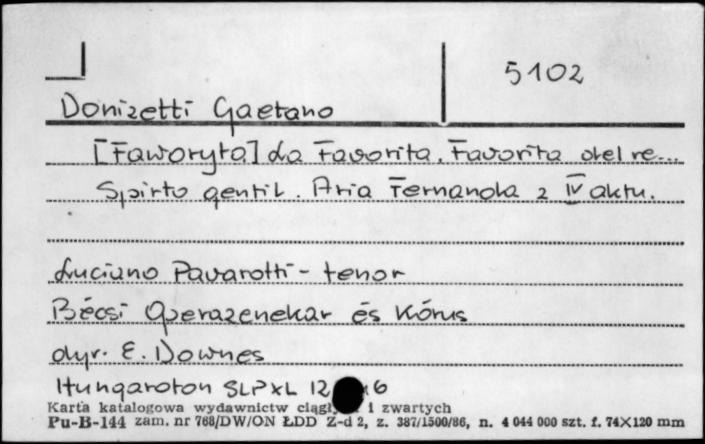 5102
Donizetti Gaetano
[Faworyta] La Favorita. Favorita del re...
Spirto gentil. Aria Fernanda z IV aktu.
Luciano Pavarotti - tenor
Bécsi Operazenekar és Kórus
dyr. E. Downes
Hungaroton SLPXL 12 6
Karta katalogowa wydawnictw i zwartych
Pu-B-144 zam. nr 768/DW/ON ŁDD Z-d 2, z. 387/1500/86, n. 4 044 000 szt. f. 74×120 mm